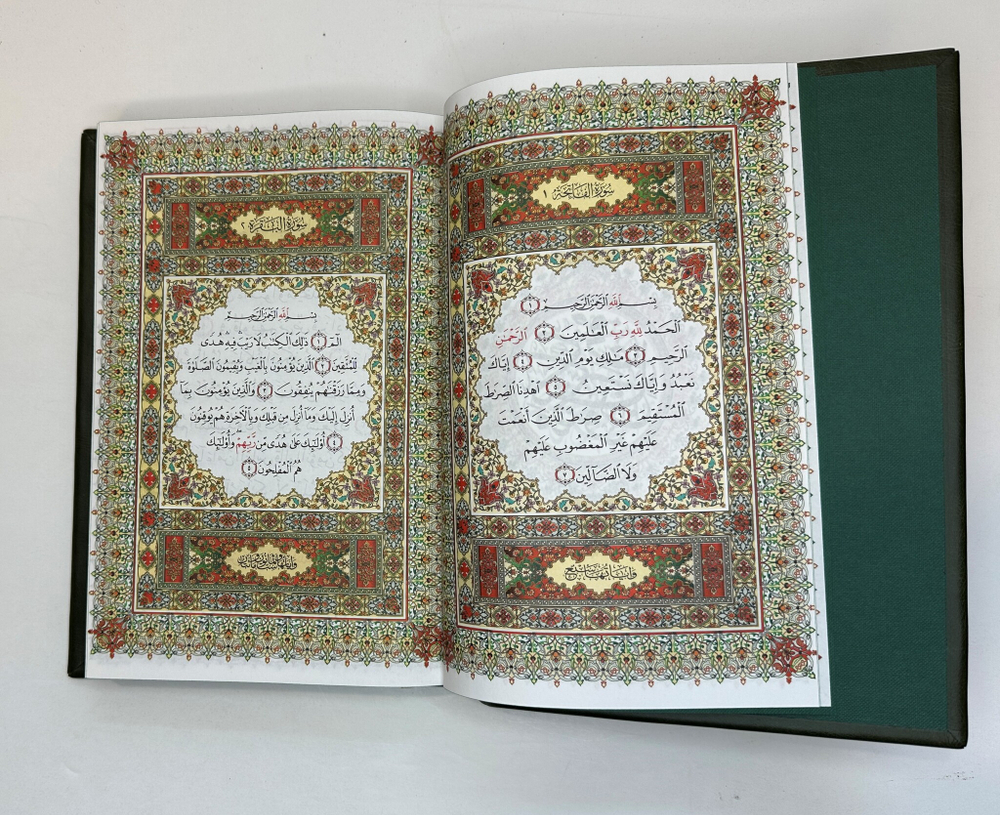 سورة الفاتحة ١
بسم ٱلله ٱلرحمن ٱلرحيم ١
ٱلحمد لله رب ٱلعلمين ٢ ٱلرحمن
ٱلرحيم ٣ ملك يوم ٱلدين ٤ إياك
نعبد وإياك نستعين ٥ ٱهدنا ٱلصرط
ٱلمستقيم ٦ صرط ٱلذين أنعمت
عليهم غير ٱلمغضوب عليهم
ولا ٱلضالين ٧
وآياتها سبع
سورة البقرة ٢
بسم ٱلله ٱلرحمن ٱلرحيم
الم ١ ذلك ٱلكتب لا ريب فيه هدى
للمتقين ٢ ٱلذين يؤمنون بٱلغيب ويقيمون ٱلصلوة
ومما رزقنهم ينفقون ٣ وٱلذين يؤمنون بما
أنزل إليك وما أنزل من قبلك وبٱلأخرة هم يوقنون
٤ أولئك على هدى من ربهم وأولئك
هم ٱلمفلحون ٥